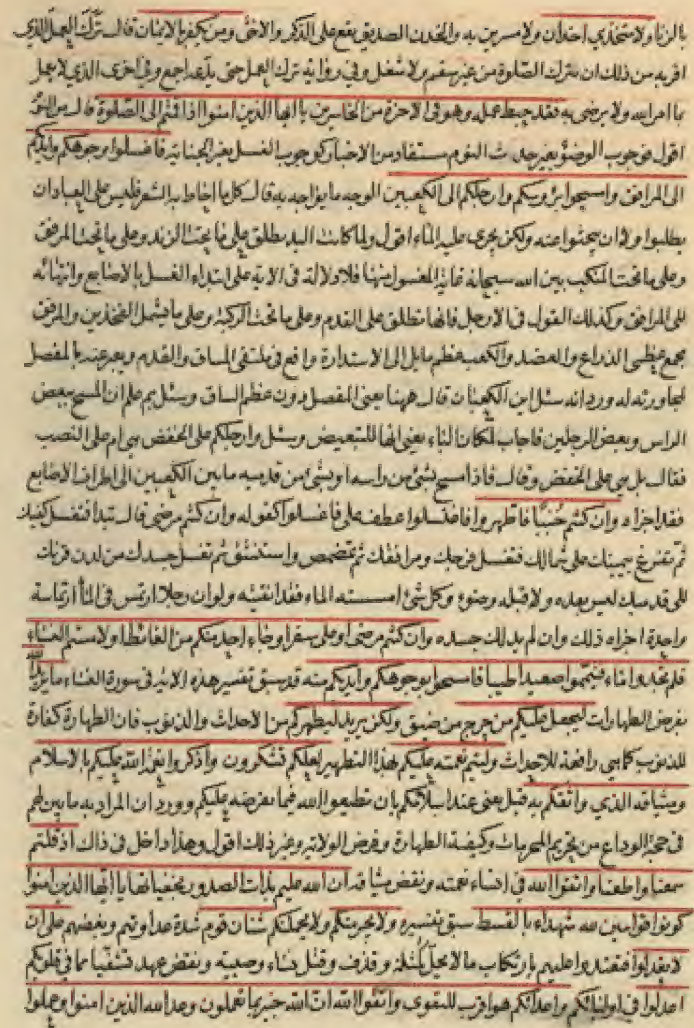 بالزنا ولا متخذي اخدان ولا مسرين به والخدن الصديق يقع على الذكر والانثى ومن يكفر بالايمان قال ترك العمل الذي
اقر به من ذلك ان يترك الصلوة من غير سقم ولا شغل وفي رواية ترك العمل حتى يدعه اجمع وفي اخرى الذي لا يعمل
بما امر الله ولا يرضى به فقد حبط عمله وهو في الاخرة من الخاسرين يا ايها الذين امنوا اذا قمتم الى الصلوة قال من النوم
اقول فوجوب الوضوء بغير حدث النوم مستفاد من الاخبار كوجوب الغسل بغير الجنابة فاغسلوا وجوهكم وايديكم
الى المرافق وامسحوا برؤسكم وارجلكم الى الكعبين الوجه ما يواجه به قال كل ما احاط به الشعر فليس على العباد ان
يطلبوا ولا ان يبحثوا عنه ولكن يجري عليه الماء اقول ولما كانت اليد يطلق على ما تحت الزند وعلى ما تحت المرفق
وعلى ما تحت المنكب بين الله سبحانه غاية المغسول منها فلا دلالة في الاية على ابتداء الغسل بالاصابع وانتهائه
الى المرافق وكذلك القول في الارجل فانها تطلق على القدم وعلى ما تحت الركبة وعلى ما يشمل الفخذين والمرفق
مجمع عظمي الذراع والعضد والكعب عظم مايل الى الاستدارة واقع في ملتقى الساق والقدم ويعبر عنه بالمفصل
لمجاورته له وورد انه سئل اين الكعبان قال ههنا يعني المفصل دون عظم الساق وسئل بم علم ان المسح ببعض
الراس وبعض الرجلين فاجاب لمكان الباء يعني انها للتبعيض وسئل وارجلكم على الخفض هي ام على النصب
فقال بل هي على الخفض وقال فاذا مسح بشئ من راسه او بشئ من قدميه ما بين الكعبين الى اطراف الاصابع
فقد اجزاه وان كنتم جنبا فاطهروا فاغتسلوا عطف على فاغسلوا كقوله وان كنتم مرضى قال تبدا فتغسل كفيك
ثم تفرغ بيمينك على شمالك فتغسل فرجك ومرافقك ثم تمضمض واستنشق ثم تغسل جسدك من لدن قرنك
الى قدميك ليس بعده ولا قبله وضوء وكل شئ امسسته الماء فقد انقيته ولو ان رجلا ارتمس في الماء ارتماسة
واحدة اجزاه ذلك وان لم يدلك جسده وان كنتم مرضى او على سفر او جاء احد منكم من الغائط او لامستم النساء
فلم تجدوا ماء فتيمموا صعيدا طيبا فامسحوا بوجوهكم وايديكم منه قد سبق تفسير هذه الاية في سورة النساء ما يريد الله
بفرض الطهارات ليجعل عليكم من حرج من ضيق ولكن يريد ليطهركم من الاحداث والذنوب فان الطهارة كفارة
للذنوب كما هي رافعة للاحداث وليتم نعمته عليكم بهذا التطهير لعلكم تشكرون واذكروا نعمة الله عليكم بالاسلام
وميثاقه الذي واثقكم به قبل يعني عند اسلامكم بان تطيعوا الله فيما يفرضه عليكم وورد ان المراد به ما بين لهم
في حجة الوداع من تحريم المحرمات وكيفية الطهارة وفرض الولاية وغير ذلك اقول وهذا داخل في ذاك اذ قلتم
سمعنا واطعنا واتقوا الله في انساء نعمته ونقض ميثاقه ان الله عليم بذات الصدور بخفياتها يا ايها الذين امنوا
كونوا قوامين لله شهداء بالقسط سبق تفسيره ولا يجرمنكم ولا يحملنكم شنان قوم شدة عداوتهم وبغضهم على ان
لا تعدلوا فتعتدوا عليهم بارتكاب ما لا يحل كمثلة وقذف وقتل نساء وصبية ونقض عهد تشفيا مما في قلوبكم
اعدلوا في اوليائكم واعدائكم هو اقرب للتقوى واتقوا الله ان الله خبير بما تعملون وعد الله الذين امنوا وعملوا